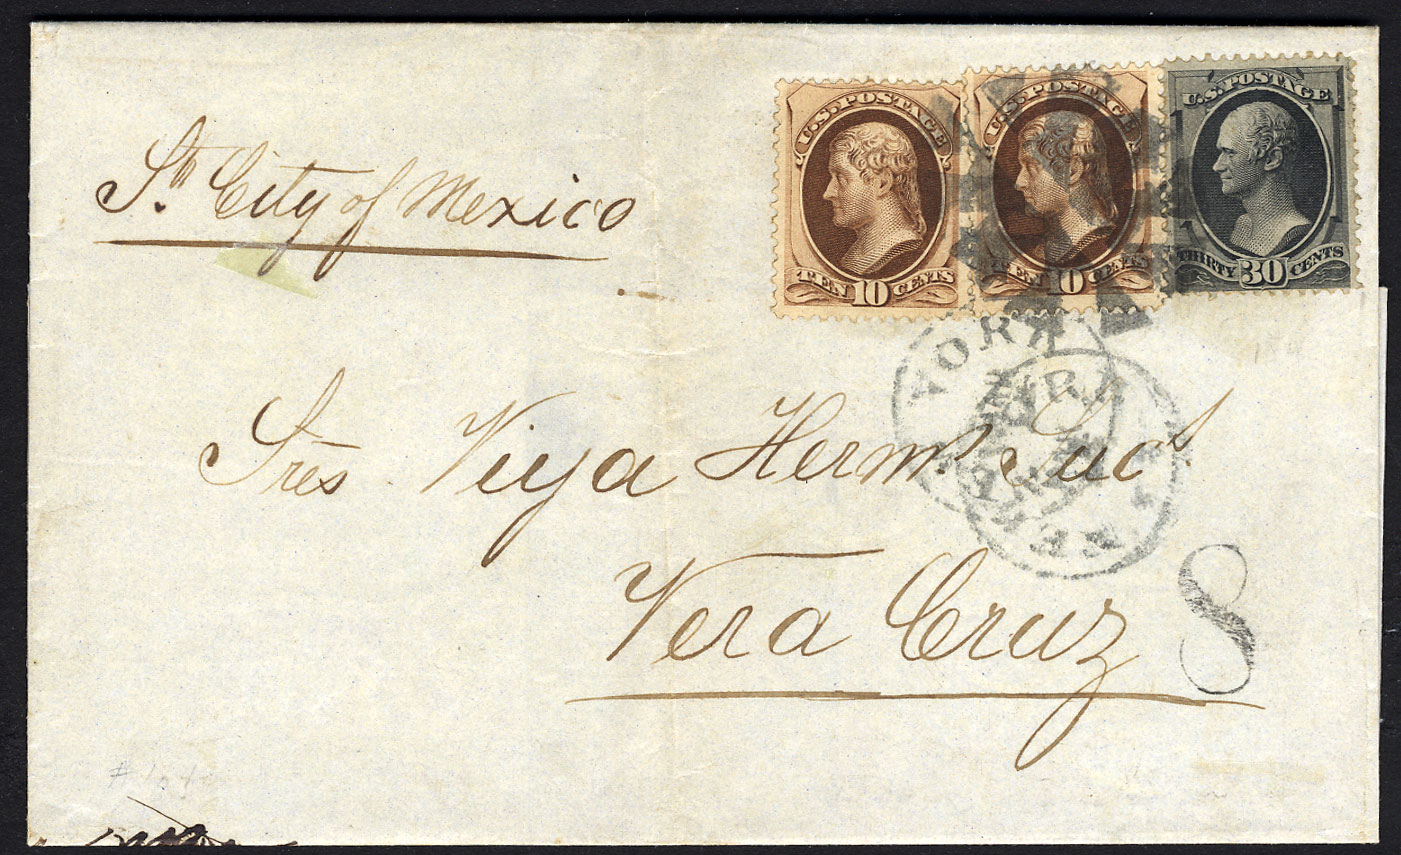 U.S. POSTAGE
TEN 10 CENTS
U.S. POSTAGE
TEN 10 CENTS
U.S. POSTAGE
THIRTY 30 CENTS
Str. City of Mexico
YORK
Sres Viya Herms. Sucs
Vera Cruz
8